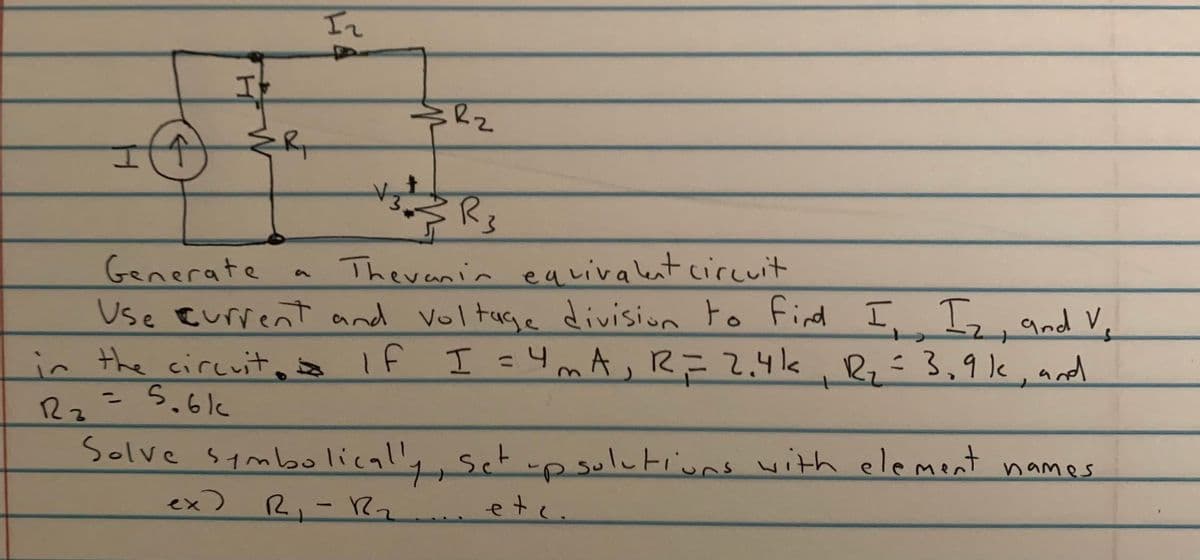 I2
I1
R2
I
R1
V3 + -
R3
Generate a Thevanin equivalent circuit
Use current and voltage division to find I1, I2, and V3
in the circuit. If I = 4mA, R1 = 2.4k, R2 = 3.9k, and
R3 = 5.6k
Solve symbolically, set up solutions with element names
ex) R1 - R2 .... etc.